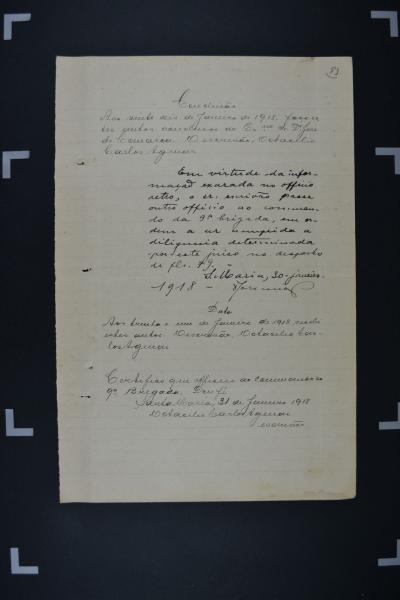 Conclusão
Aos vinte seis de Janeiro de 1918 faço
os autos conclusos ao Exmo Sr. Dr. Juiz
de Comarca. O escrivão, Octacilio
Carlos Aguiar
Em virtude da infor-
mação exarada no officio
retro, o sr. escrivão passe
outro officio ao comman-
do da 9ª brigada, em or-
dem a ser cumprida a
diligencia determinada
por este juizo no despacho
de fls.
S. Maria, 30 janeiro
1918 -
Data
Aos trinta e um de Janeiro de 1918 recebi
estes autos. O escrivão, Octacilio Car-
los Aguiar
Certifico que officiei ao commando
9ª Brigada. Dou fé
Santa Maria, 31 de Janeiro 1918
Octacilio Carlos Aguiar
escrivão